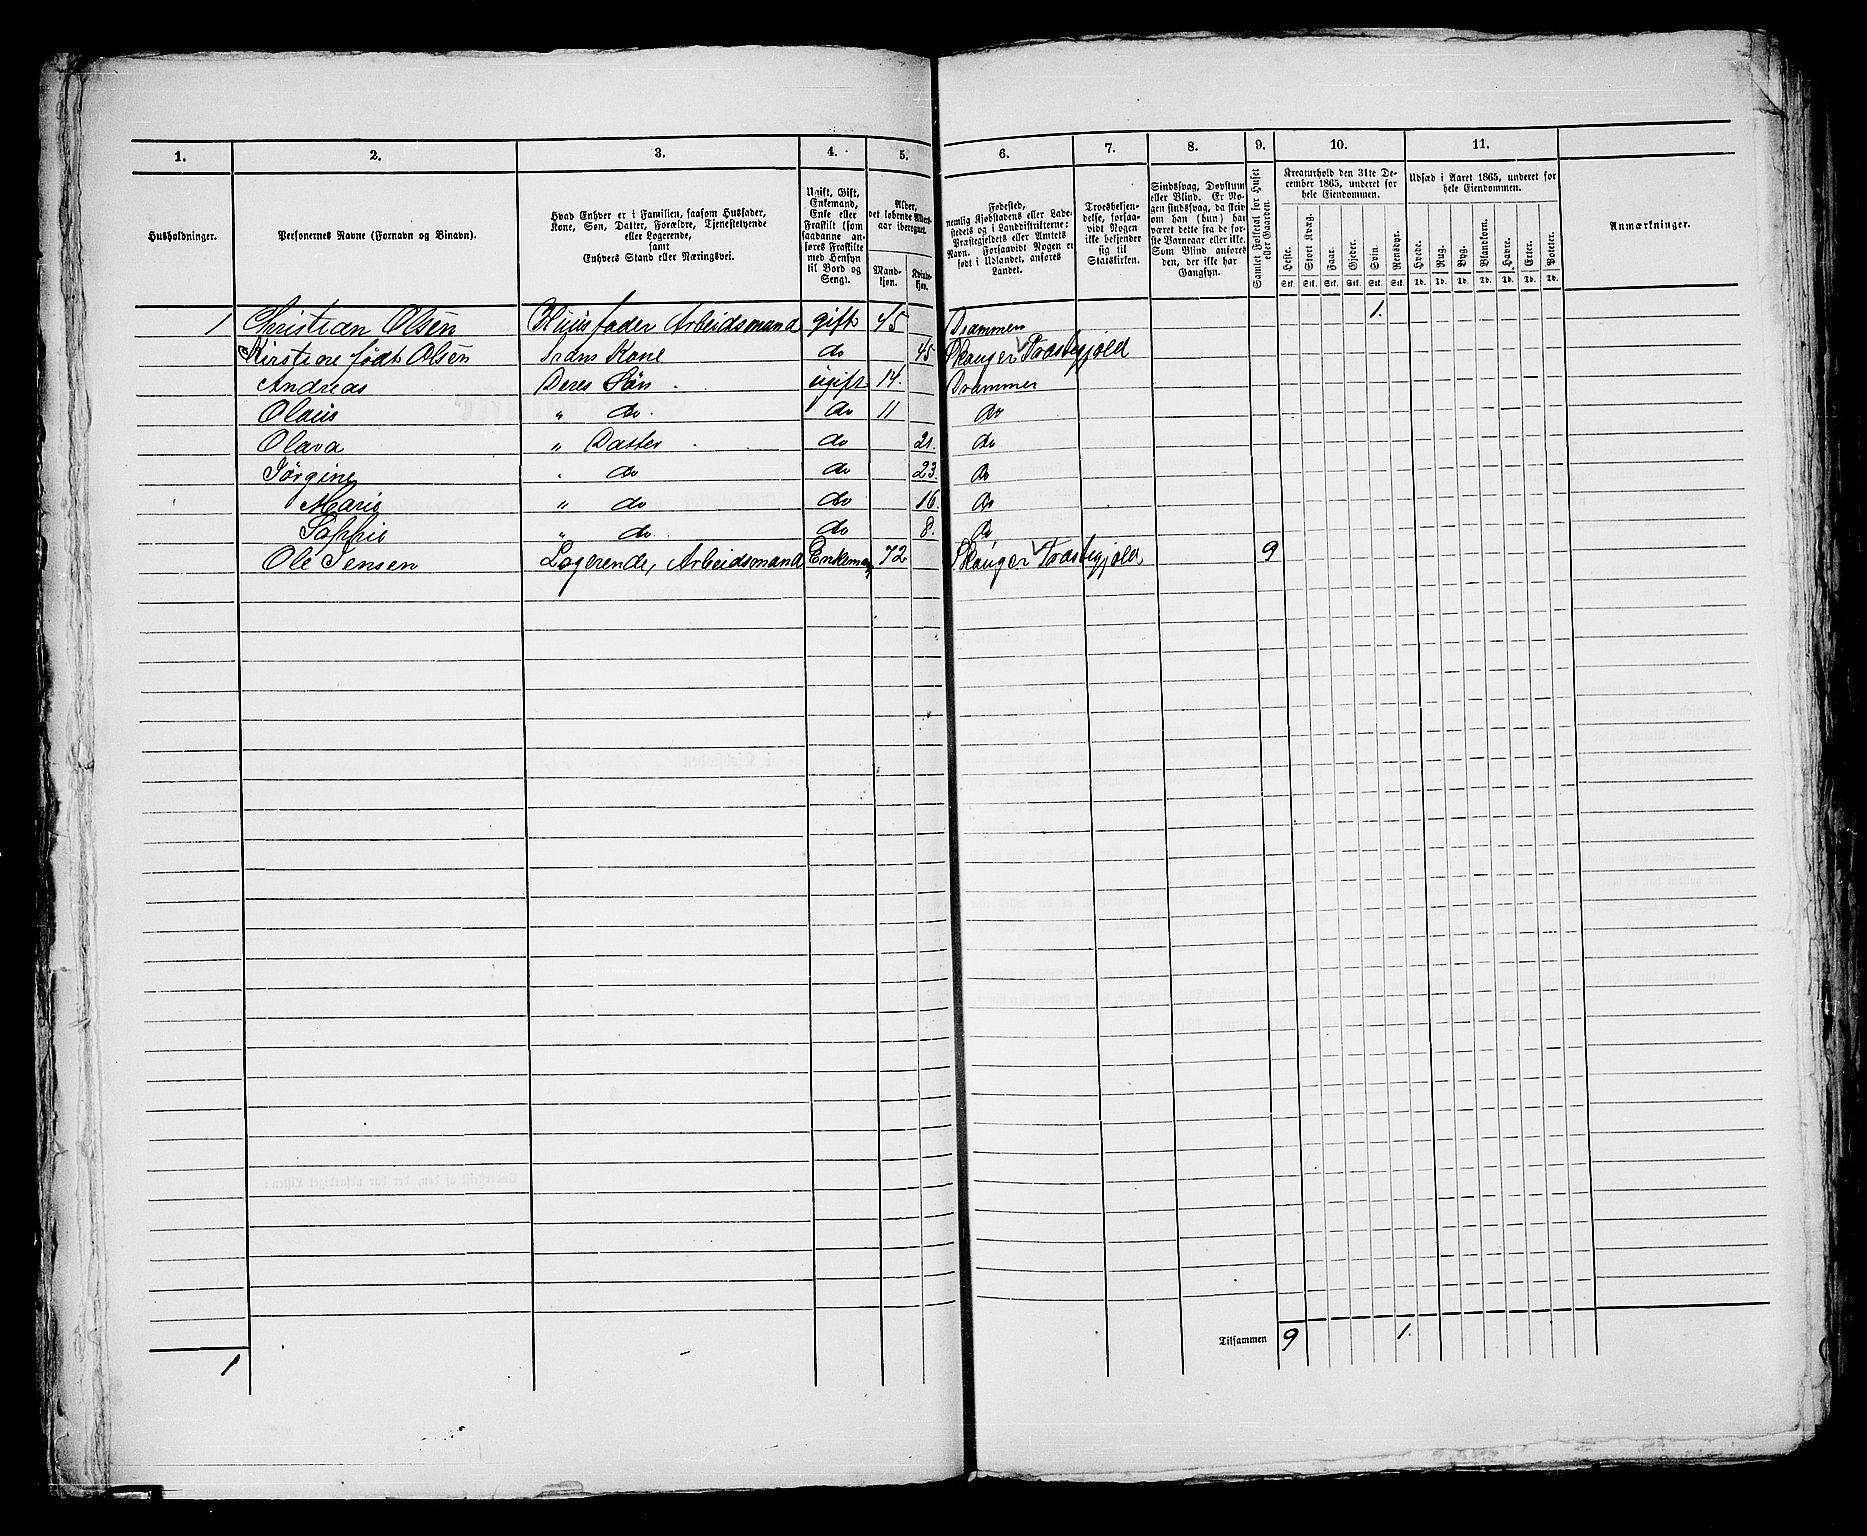 1. 2. 3. 4. 5. 6. 7. 8. 9. 10. 11.
Husholdninger.
Personernes Navne (Fornavn og Binavn).
Hvad Enhver er i Familien, saasom Husfader, Kone, Søn, Datter, Forældre, Tjenestetyende eller Logerende, samt Enhvers Stand eller Næringsvei.
Ugift, Gift, Enkemand, Enke eller Fraskilt (som saadanne anføres Fraskilte med Hensyn til Bord og Seng).
Alder, det løbende Alders-aar iberegnet.
Mand-kjøn. Kvinde-kjøn.
Fødested, nemlig Kjøbstadens eller Ladestedets og i Landdistrifterne: Præstegjeldets eller Amtets Navn. Forsaavidt Nogen er født i Udlandet, anføres Landet.
Troesbekjendelse, forsaavidt Nogen ikke bekjender sig til Statskirken.
Sindssvag, Døvstum eller Blind. Er Nogen sindssvag, da skrives om han (hun) har været dette fra de første Barneaar eller ikke. Som Blind anføres den, der ikke har Gangsyn.
Samlet Folketal for Huset eller Gaarden.
Kreaturhold den 31te December 1865, underet for hele Eiendommen.
Heste. Stort Kvæg. Faar. Gjeder. Svin. Rensdyr.
Stk. Stk. Stk. Stk. Stk. Stk.
Udsæd i Aaret 1865, underet for hele Eiendommen.
Hvede. Rug. Byg. Blandkorn. Havre. Erter. Poteter.
Td. Td. Td. Td. Td. Td. Td.
Anmærkninger.
1 Christian Olsen Huusfader Arbeidsmand gift 45 Drammen 1.
Kirstine født Olsen Hans Kone do 45 Skouger Præstegjæld
Andreas Deres Søn ugift 14. Drammen
Olaus " do. do 11 do
Olava " Datter do 21. do
Jørgine " do do 23. do
Marie " do do 16. do
Soffie " do. do 8. do
Ole Jensen Logerende, Arbeidsmand Enkemand 72 Skouger Præstegjæld 9
Tilsammen 9 1.
1